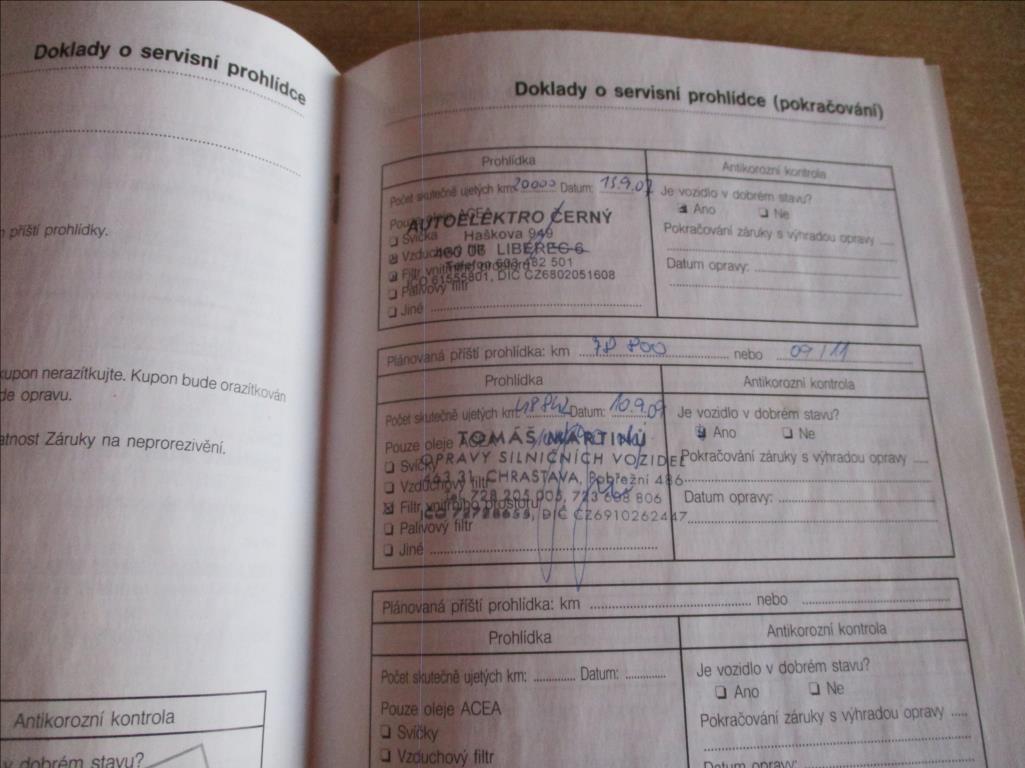 Doklady o servisní prohlídce
příští prohlídky.
kupon nerazítkujte. Kupon bude orazítkován
de opravu.
atnost Záruky na neprorezivění.
Antikorozní kontrola
v dobrém stavu?
Doklady o servisní prohlídce (pokračování)
Prohlídka
Antikorozní kontrola
Počet skutečně ujetých km: 20000 Datum: 15.9.07
Je vozidlo v dobrém stavu?
Ano Ne
Pouze oleje ACEA
AUTOELEKTRO ČERNÝ
Svíčka
Haškova 949
Pokračování záruky s výhradou opravy
Vzduchový filtr
460 06 LIBEREC 6
Telefon 603 482 501
Filtr vnitřního prostoru
IČO 61555801, DIČ CZ6802051608
Datum opravy:
Palivový filtr
Jiné
Plánovaná příští prohlídka: km 78 800 nebo 09/11
Prohlídka
Antikorozní kontrola
Počet skutečně ujetých km: 48842 Datum: 10.9.09
Je vozidlo v dobrém stavu?
Ano Ne
Pouze oleje ACEA
TOMÁŠ MARTINŮ
Svíčky
OPRAVY SILNIČNÍCH VOZIDEL
Pokračování záruky s výhradou opravy
Vzduchový filtr
463 31 CHRASTAVA, Pobřežní 486
Filtr vnitřního prostoru
tel. 728 205 005, 723 606 806
Datum opravy:
IČO 72728655, DIČ CZ6910262447
Palivový filtr
Jiné
Plánovaná příští prohlídka: km nebo
Prohlídka
Antikorozní kontrola
Počet skutečně ujetých km: Datum:
Je vozidlo v dobrém stavu?
Ano Ne
Pouze oleje ACEA
Pokračování záruky s výhradou opravy
Svíčky
Vzduchový filtr
Datum opravy: